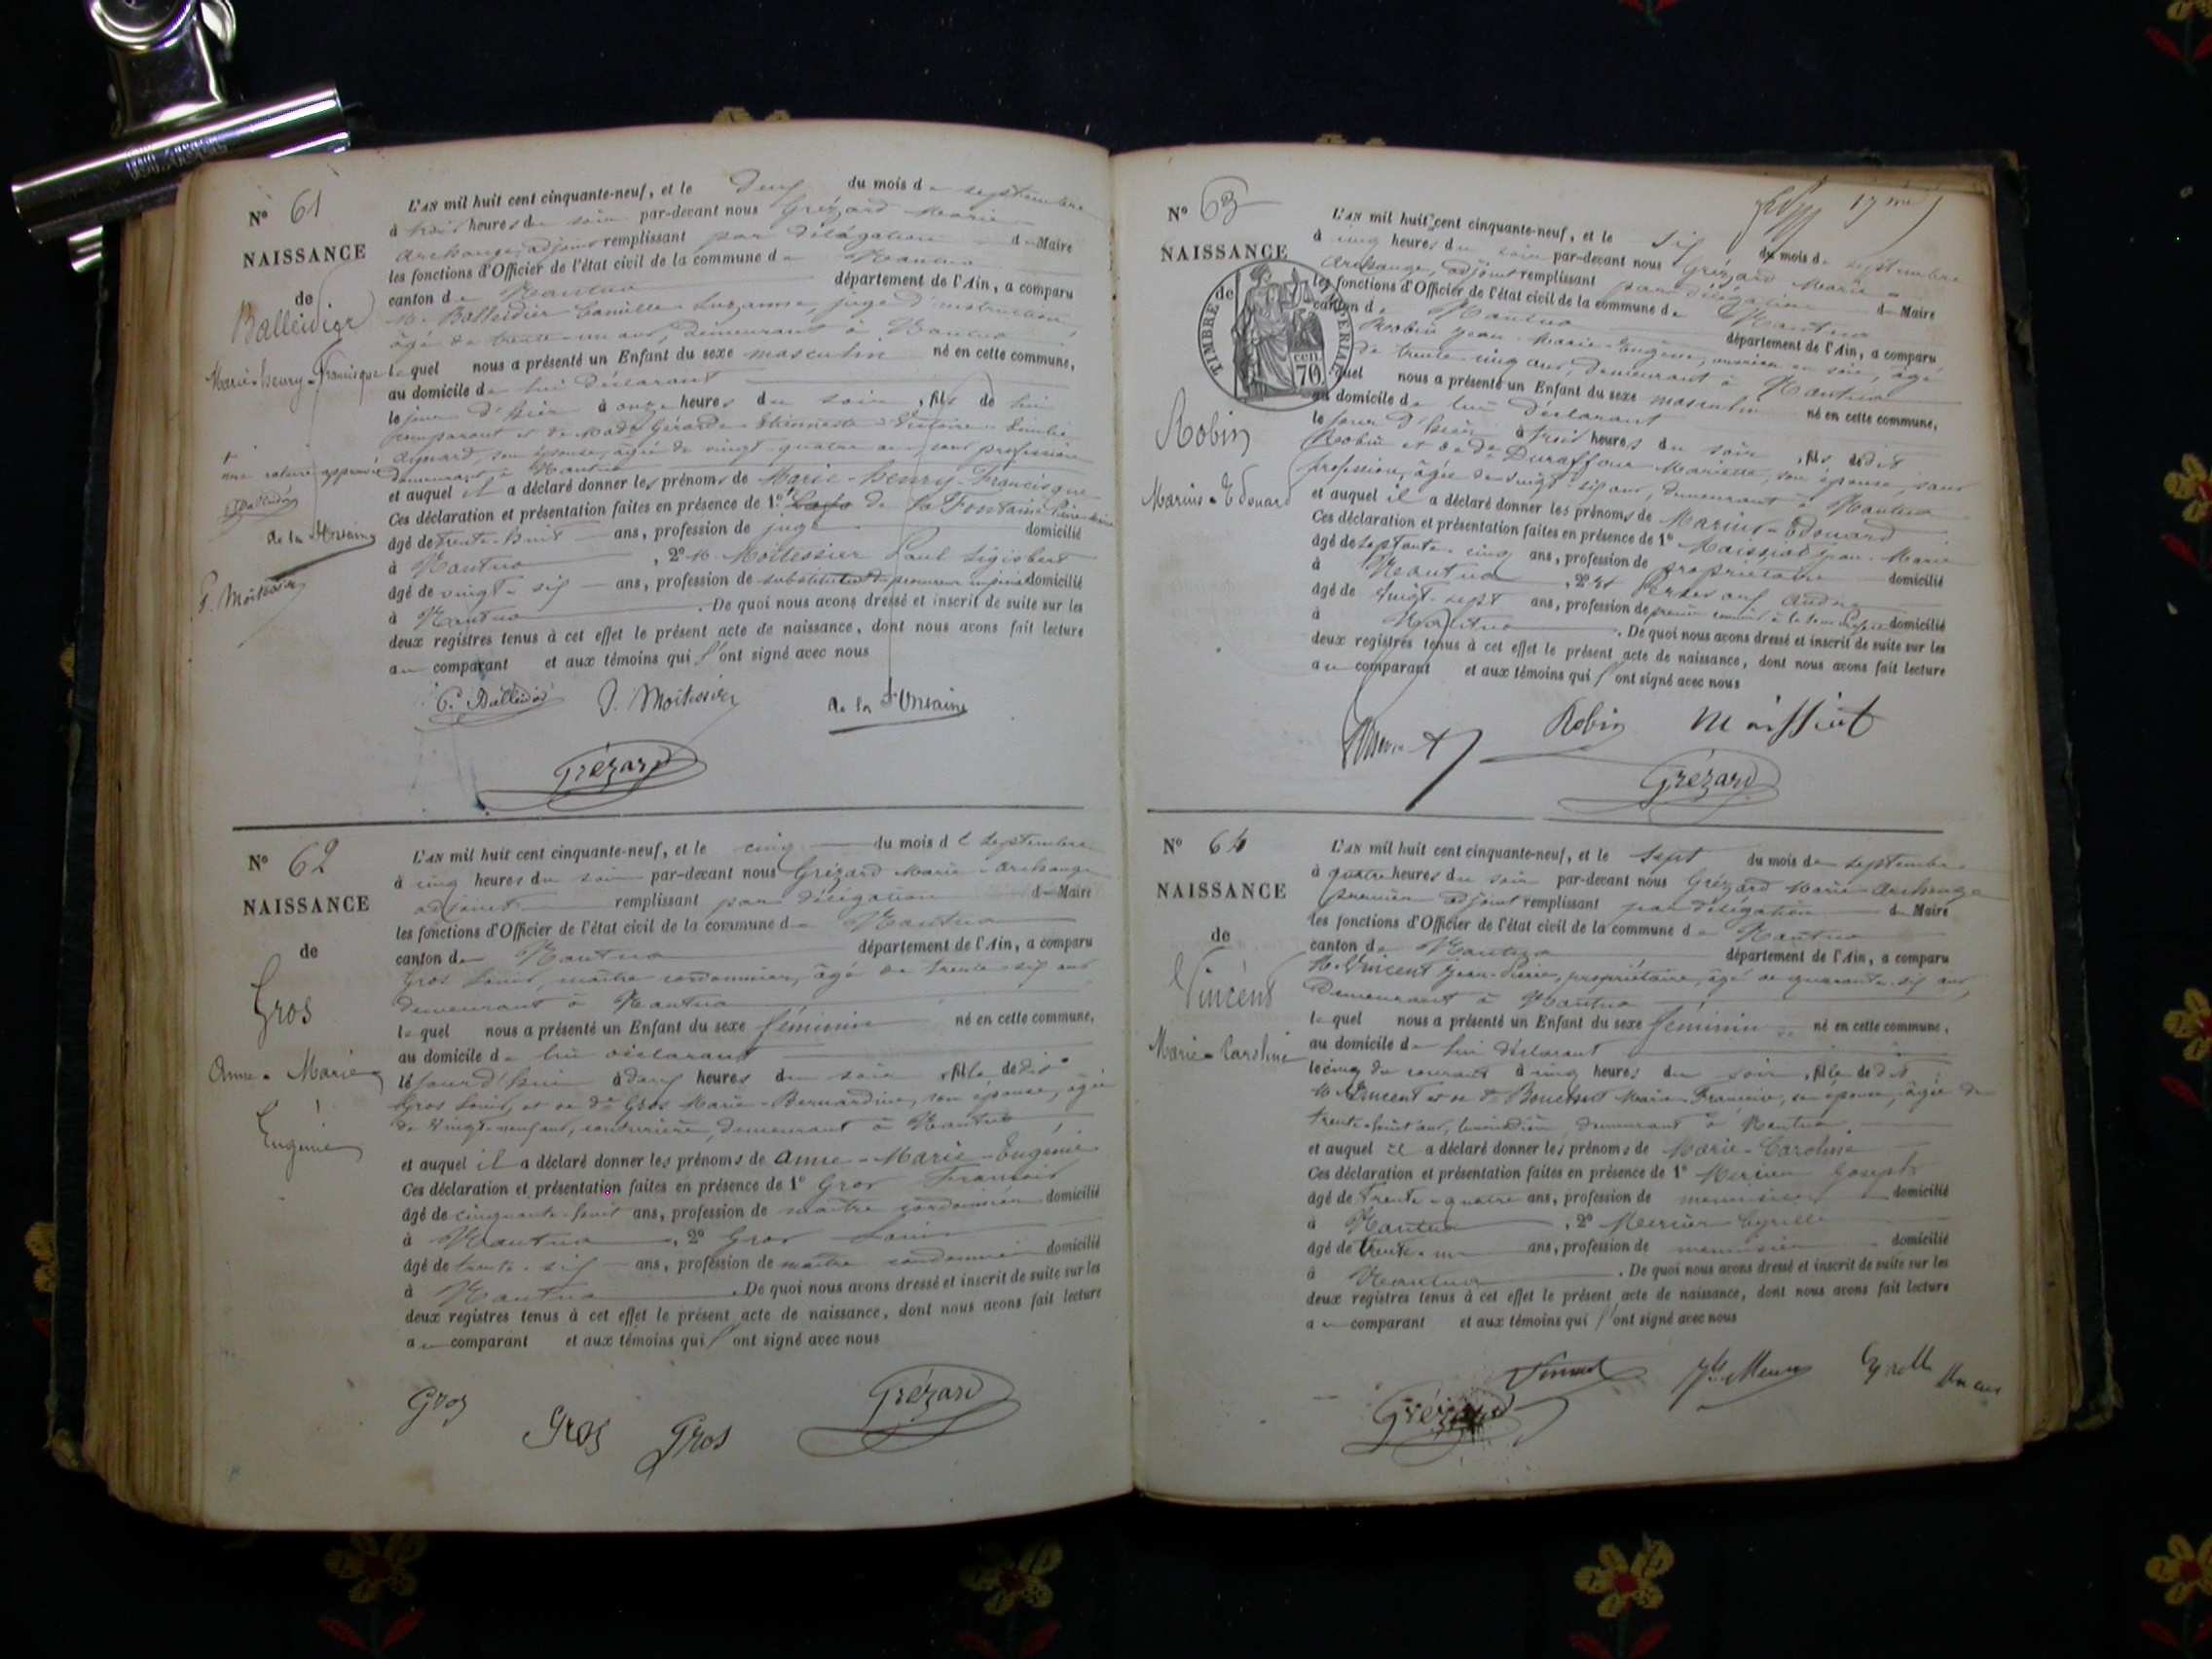 N° 61
NAISSANCE
de
Balleidier
Marie-henry-Francisque
une rature approuvée
de la Fontaine
P. Moitessier
L'AN mil huit cent cinquante-neuf, et le deux du mois de septembre
à trois heures du soir par-devant nous Grézard Marie
Archange, adjoint remplissant par délégation du Maire
les fonctions d'Officier de l'état civil de la commune de Nantua
canton de Nantua département de l'Ain, a comparu
M. Balleidier Camille juge d'instruction,
âgé de trente-un ans, demeurant à Nantua
lequel nous a présenté un Enfant du sexe masculin né en cette commune,
au domicile de lui déclarant
le jour d'hier à onze heures du soir, fils de lui
comparant et de Made Girarde Etiennette Victoire Emilie
Aynard, son épouse, âgée de vingt-quatre ans, sans profession
demeurant à Nantua
et auquel il a déclaré donner les prénoms de Marie-henry-Francisque
Ces déclaration et présentation faites en présence de 1° de La Fontaine
âgé de trente-huit ans, profession de juge domicilié
à Nantua, 2° M. Moitessier Paul Sigisbert
âgé de vingt-six ans, profession de substitut du procureur impérial domicilié
à Nantua. De quoi nous avons dressé et inscrit de suite sur les
deux registres tenus à cet effet le présent acte de naissance, dont nous avons fait lecture
au comparant et aux témoins qui l'ont signé avec nous
C. Balleidier P. Moitessier de la Fontaine
Grézard
N° 62
NAISSANCE
de
Gros
Anne-Marie
Eugénie
L'AN mil huit cent cinquante-neuf, et le cinq du mois de septembre
à cinq heures du soir par-devant nous Grézard Marie-Archange
adjoint remplissant par délégation du Maire
les fonctions d'Officier de l'état civil de la commune de Nantua
canton de Nantua département de l'Ain, a comparu
Gros Louis, maître cordonnier, âgé de trente-six ans
demeurant à Nantua
lequel nous a présenté un Enfant du sexe féminin né en cette commune,
au domicile de lui déclarant
le jour d'hui à deux heures du soir, fille de dit
Gros Louis, et de de Gros Marie-Bernardine, son épouse, âgée
de vingt-neuf ans, couturière, demeurant à Nantua
et auquel il a déclaré donner les prénoms de Anne-Marie-Eugénie
Ces déclaration et présentation faites en présence de 1° Gros François
âgé de cinquante-huit ans, profession de maître cordonnier domicilié
à Nantua, 2° Gros Louis
âgé de trente-six ans, profession de maître cordonnier domicilié
à Nantua. De quoi nous avons dressé et inscrit de suite sur les
deux registres tenus à cet effet le présent acte de naissance, dont nous avons fait lecture
au comparant et aux témoins qui l'ont signé avec nous
Gros Gros Gros Grézard
17me
N° 63
NAISSANCE
de
TIMBRE IMPERIAL
cen 70
Robin
Marius-Edouard
L'AN mil huit cent cinquante-neuf, et le six du mois de septembre
à cinq heures du soir par-devant nous Grézard Marie
Archange, adjoint remplissant par délégation du Maire
les fonctions d'Officier de l'état civil de la commune de Nantua
canton de Nantua département de l'Ain, a comparu
Robin Jean-Marie-Eugène, ouvrier en soie, âgé
de trente-cinq ans, demeurant à Nantua
lequel nous a présenté un Enfant du sexe masculin né en cette commune,
au domicile de lui déclarant
le jour d'hier à trois heures du soir, fils de dit
Robin et de de Duraffour Mariette, son épouse, sans
profession, âgée de vingt-six ans, demeurant à Nantua
et auquel il a déclaré donner les prénoms de Marius-Edouard
Ces déclaration et présentation faites en présence de 1° Maissiat Jean-Marie
âgé de septante-cinq ans, profession de propriétaire domicilié
à Nantua, 2° André
âgé de vingt-sept ans, profession de premier commis à la sous-Préfecture domicilié
à Nantua. De quoi nous avons dressé et inscrit de suite sur les
deux registres tenus à cet effet le présent acte de naissance, dont nous avons fait lecture
au comparant et aux témoins qui l'ont signé avec nous
Robin Maissiat
Grézard
N° 64
NAISSANCE
de
Vincent
Marie-Caroline
L'AN mil huit cent cinquante-neuf, et le sept du mois de septembre
à quatre heures du soir par-devant nous Grézard Marie-Archange
premier adjoint remplissant par délégation du Maire
les fonctions d'Officier de l'état civil de la commune de Nantua
canton de Nantua département de l'Ain, a comparu
M. Vincent Jean-Pierre, propriétaire, âgé de quarante-six ans,
demeurant à Nantua
lequel nous a présenté un Enfant du sexe féminin né en cette commune,
au domicile de lui déclarant
le cinq du courant à cinq heures du soir, fille de dit
M. Vincent et de de Marie Françoise, son épouse, âgée de
trente-huit ans, demeurant à Nantua
et auquel il a déclaré donner les prénoms de Marie-Caroline
Ces déclaration et présentation faites en présence de 1° Mercier Joseph
âgé de trente-quatre ans, profession de menuisier domicilié
à Nantua, 2° Mercier Cyrille
âgé de trente-un ans, profession de menuisier domicilié
à Nantua. De quoi nous avons dressé et inscrit de suite sur les
deux registres tenus à cet effet le présent acte de naissance, dont nous avons fait lecture
au comparant et aux témoins qui l'ont signé avec nous
Vincent
Grézard